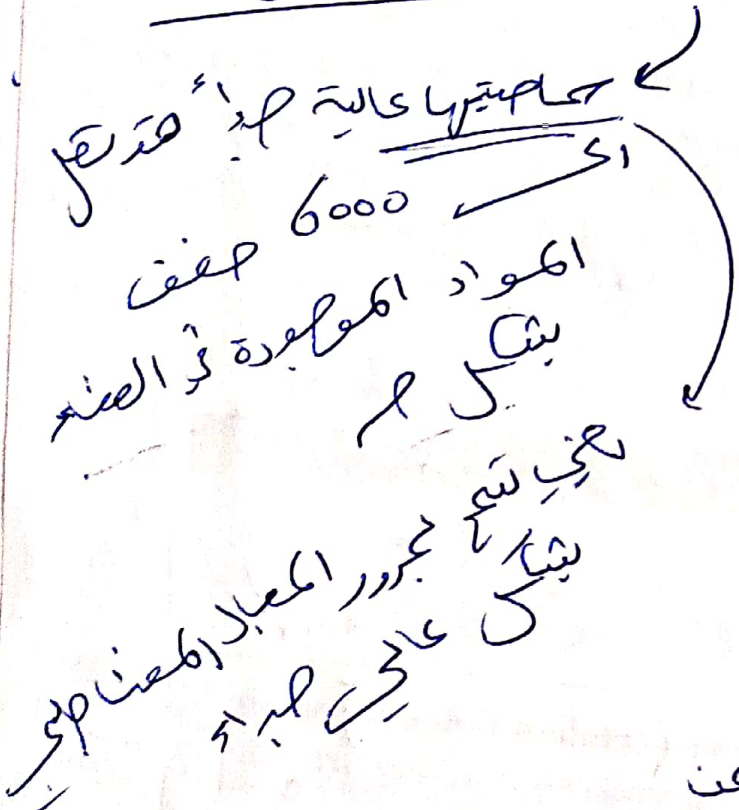 سماحيتها عالية جداً قد تصل
الى 6000 ضعف
المواد الموجودة في
بشكل حر
يعني تسمح بمرور المجال المغناطيسي
بشكل عالي جداً